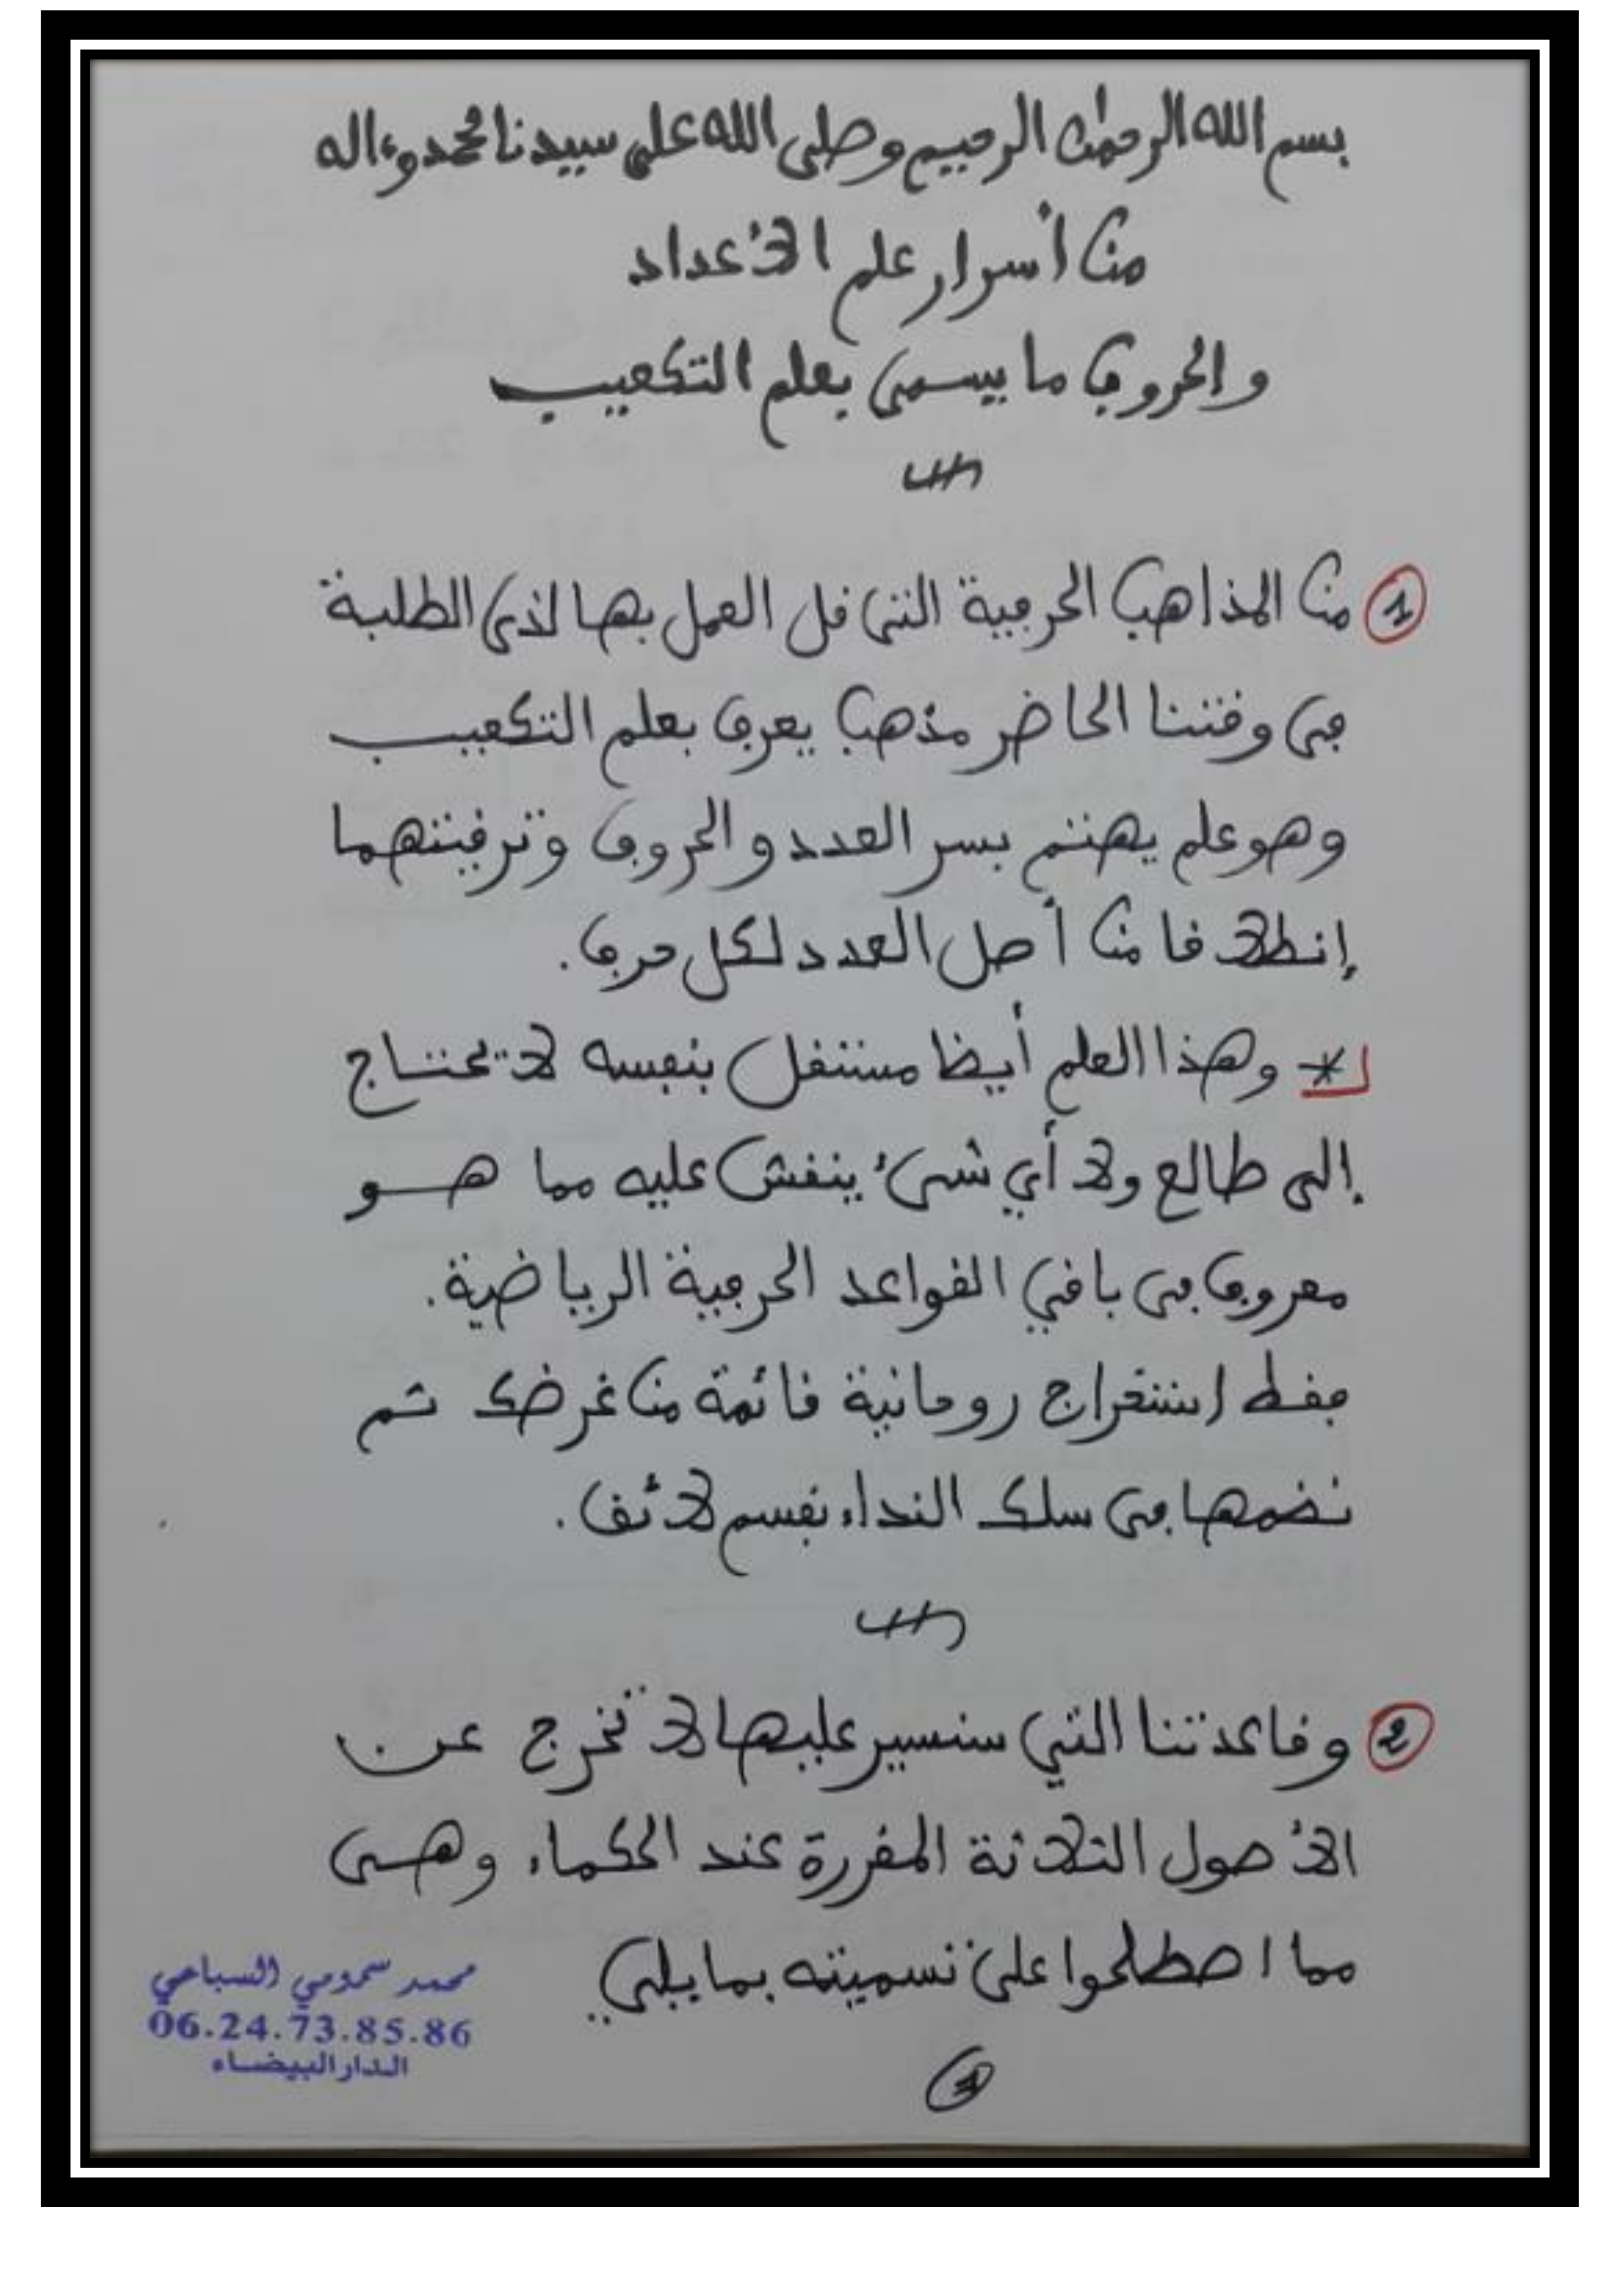 بسم الله الرحمن الرحيم وصلى الله على سيدنا محمد وءاله
من أسرار علم الأعداد
والحروف ما يسمى بعلم التكعيب
① من المذاهب الحرفية التي قل العمل بها لذى الطلبة
في وقتنا الحاضر مذهب يعرف بعلم التكعيب
وهو علم يهتم بسر العدد والحروف وترقيتهما
إنطلاقا من أصل العدد لكل حرف.
* وهذا العلم أيظا مستقل بنفسه لا تحتاج
إلى طالع ولا أي شىء ينقش عليه مما هو
معروف في باقي القواعد الحرفية الرياضية.
فقط استخراج روحانية قائمة من غرضك ثم
نضمها في سلك النداء بقسم لائق.
② وقاعدتنا التي سنسير عليها لا تخرج عن
الأصول الثلاثة المقررة عند الحكماء وهي
مما اصطلحوا على تسميته بما يلي
محمد سمومي السباعي
06.24.73.85.86
الدار البيضاء
①